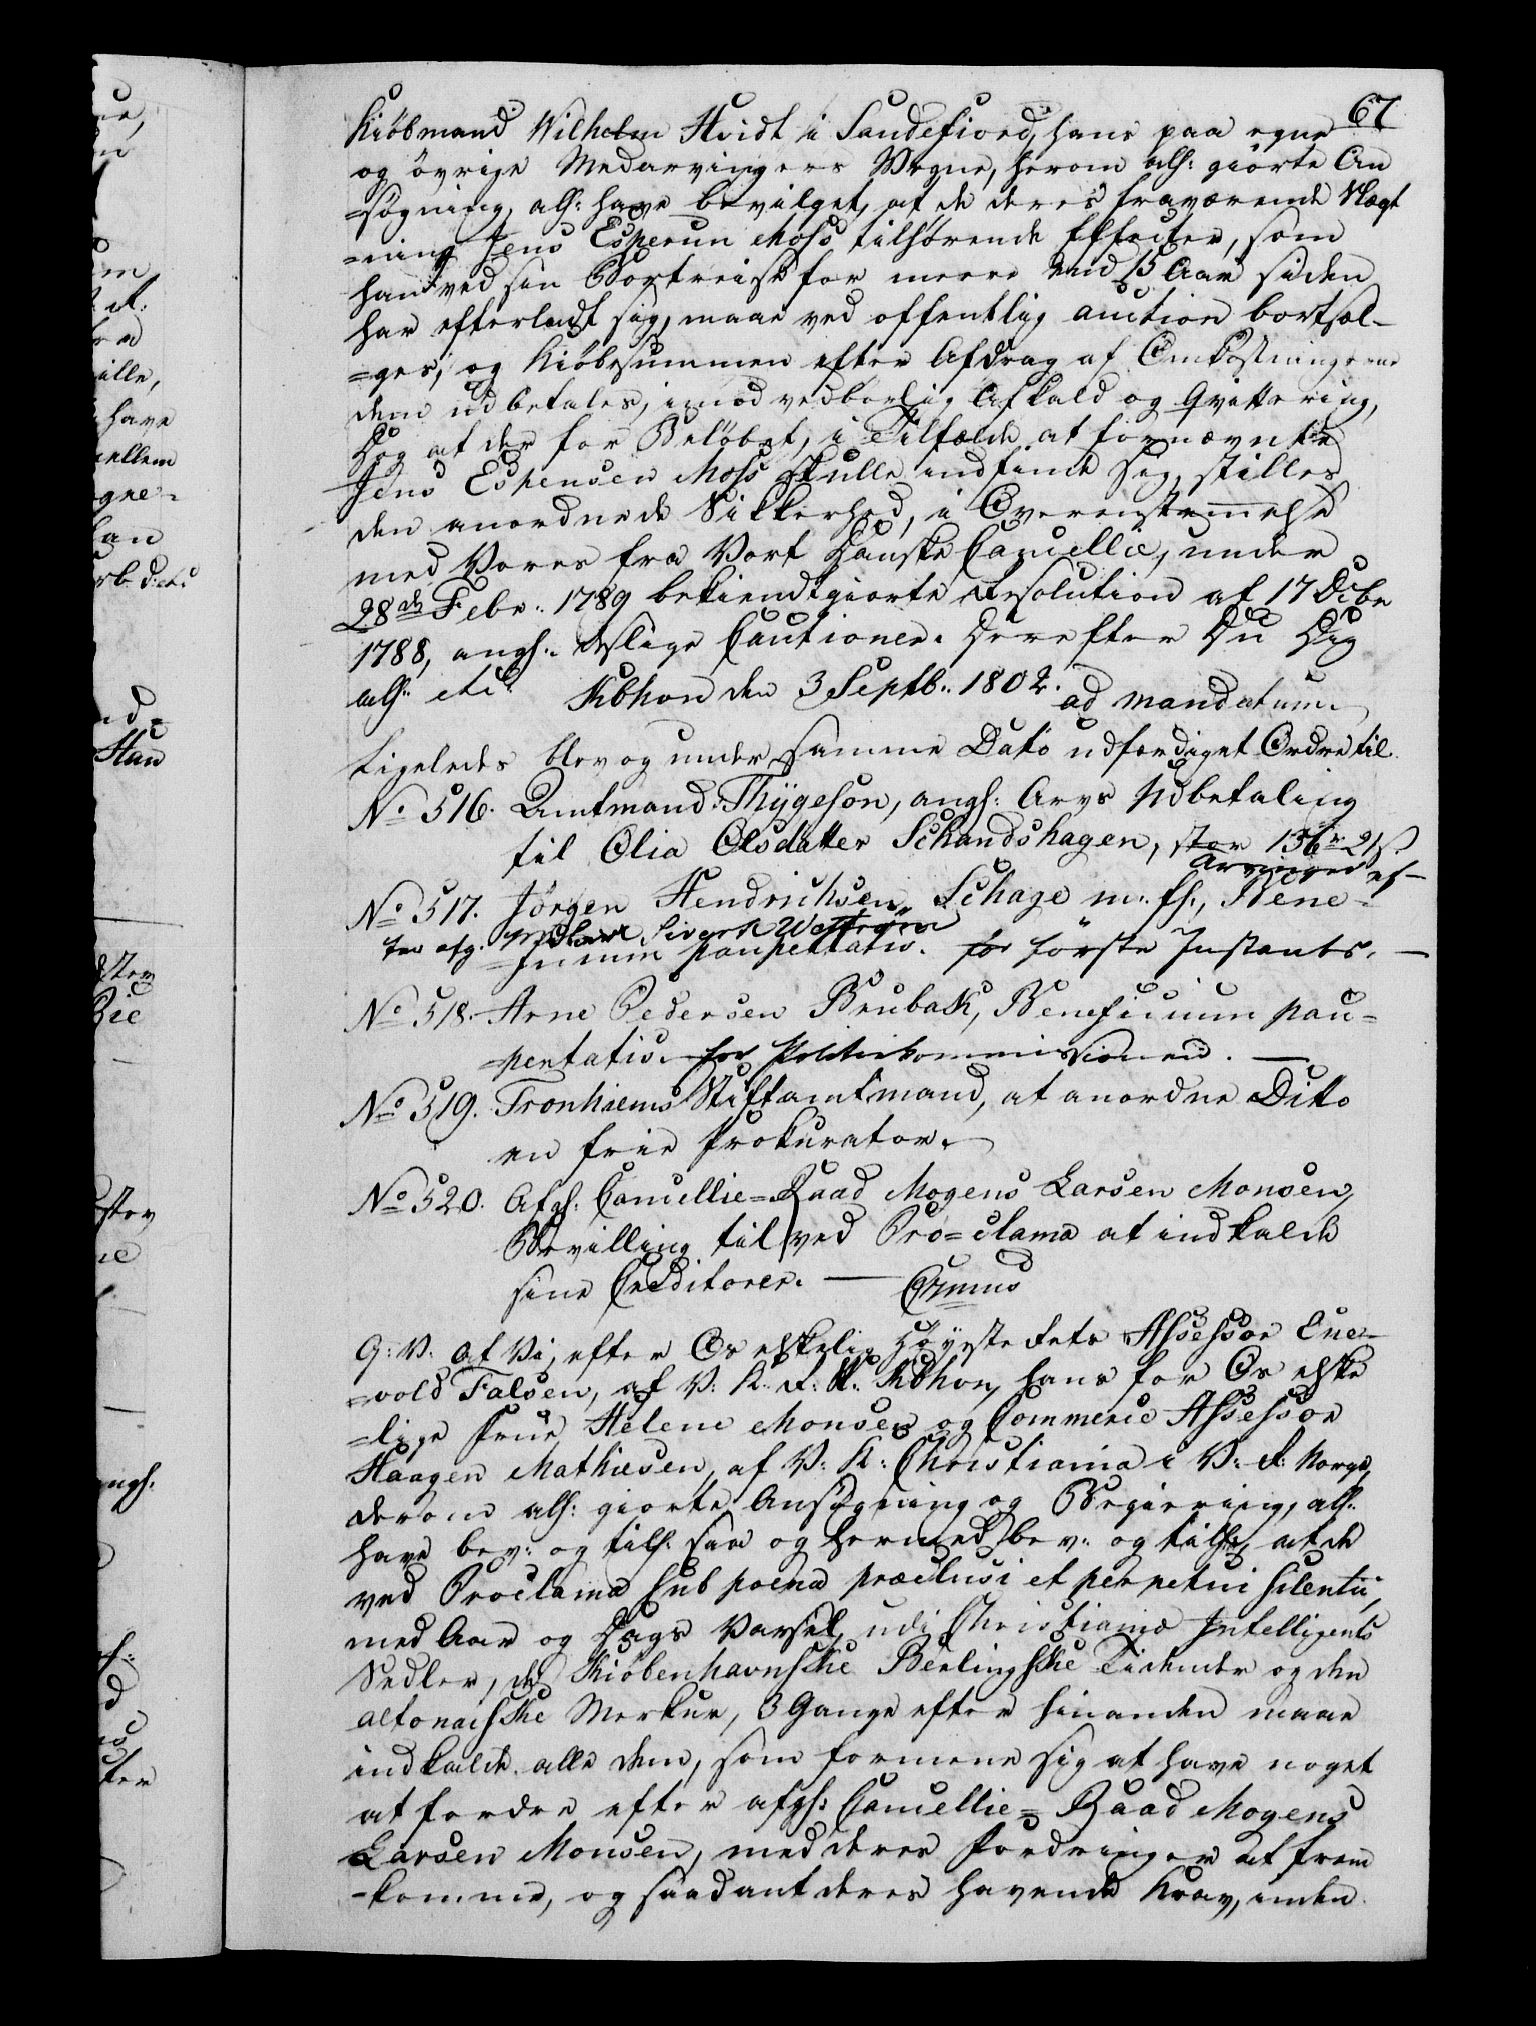 67
Kiöbmand Wilhelm Hvidt i Sandefiord, hans paa egne
og övrige Medarvingers Vegne, herom allr: giörte An
=søgning, allr: have bevilget, at de deres fraværende Slægt
=ning Jens Espensen Moss tilhørende Effecter, som
han ved sin Bortreise for meere end 15 Aar siden
har efterladt sig, maae ved offentlig auction bortsæl-
=ges, og Kiöbesummen efter Afdrag af Omkostningerne
dem udbetales, imod vedbørlig Afkald og Qvittering,
Dog at der for Beløbet, i Tilfælde at fornævnte
Jens Espensen Moss skulle indfinde sig, stilles
den anordnede Sikkerhed, i Overensstemmelse
med Vores fra Vort Danske Cancellie, under
28de Febr: 1789 bekiendtgiorte Resolution af 17 Decbr
1788, angl: slige Cautioner. Derefter Du Dig
allr: etc: Kbhvn den 3 Septb: 1802. ad mandatum.
Ligeledes blev og under samme Dato udfærdiget Ordre til
No 516. Amtmand Thygeson, angl: Arvs Udbetaling
til Olia Olsdatter Schandshagen, stor 136 r 21 s.
No 517. Jörgen Hendrichsen Schage m: fl:, Arvinger ef-
ter afg: Sivert Bene-
=ficium paupertatis. for förste Instants. —
No 518. Arne Pedersen Brubak, Beneficium pau=
=pertatis. for Politiekommissionen. —
No 519. Tronhiems Stiftamtmand, at anordne Ditto
en frie Prokurator.
No 520. Afgl: Cancellie=Raad Mogens Larsen Monsen,
Bevilling til ved Pro=clama at indkalde
sine Creditorer. —
G: V: at Vi, efter Os elskelig Höyeste Rets Assessor Ene-
=vold Falsen, af V: K: R: St: Kbhvn, hans for Os elske
=lige Frue Helene Monsen og Commerce Assessor
Haagen Mathiesen, af V: K: Christiania i V: R: Norge,
derom allr: giorte Ansøgning og Begiering, allr:
have bev: og till: saa og hermed bev: og till: at de
ved Proclama sub poena præclusi et perpetui silentii,
med Aar og Dags Varsel, udi Christianiæ Intelligents
Sedler, de Kiöbenhavnske Berlingske Tidender og den
altonaiske Merkur, 3 Gange efter hinanden maae
indkalde alle dem, som formene sig at have noget
at fordre efter afgl: Cancellie=Raad Mogens
Larsen Monsen, med deres Fordringer at frem
=komme, og saadant deres havende Krav, inden